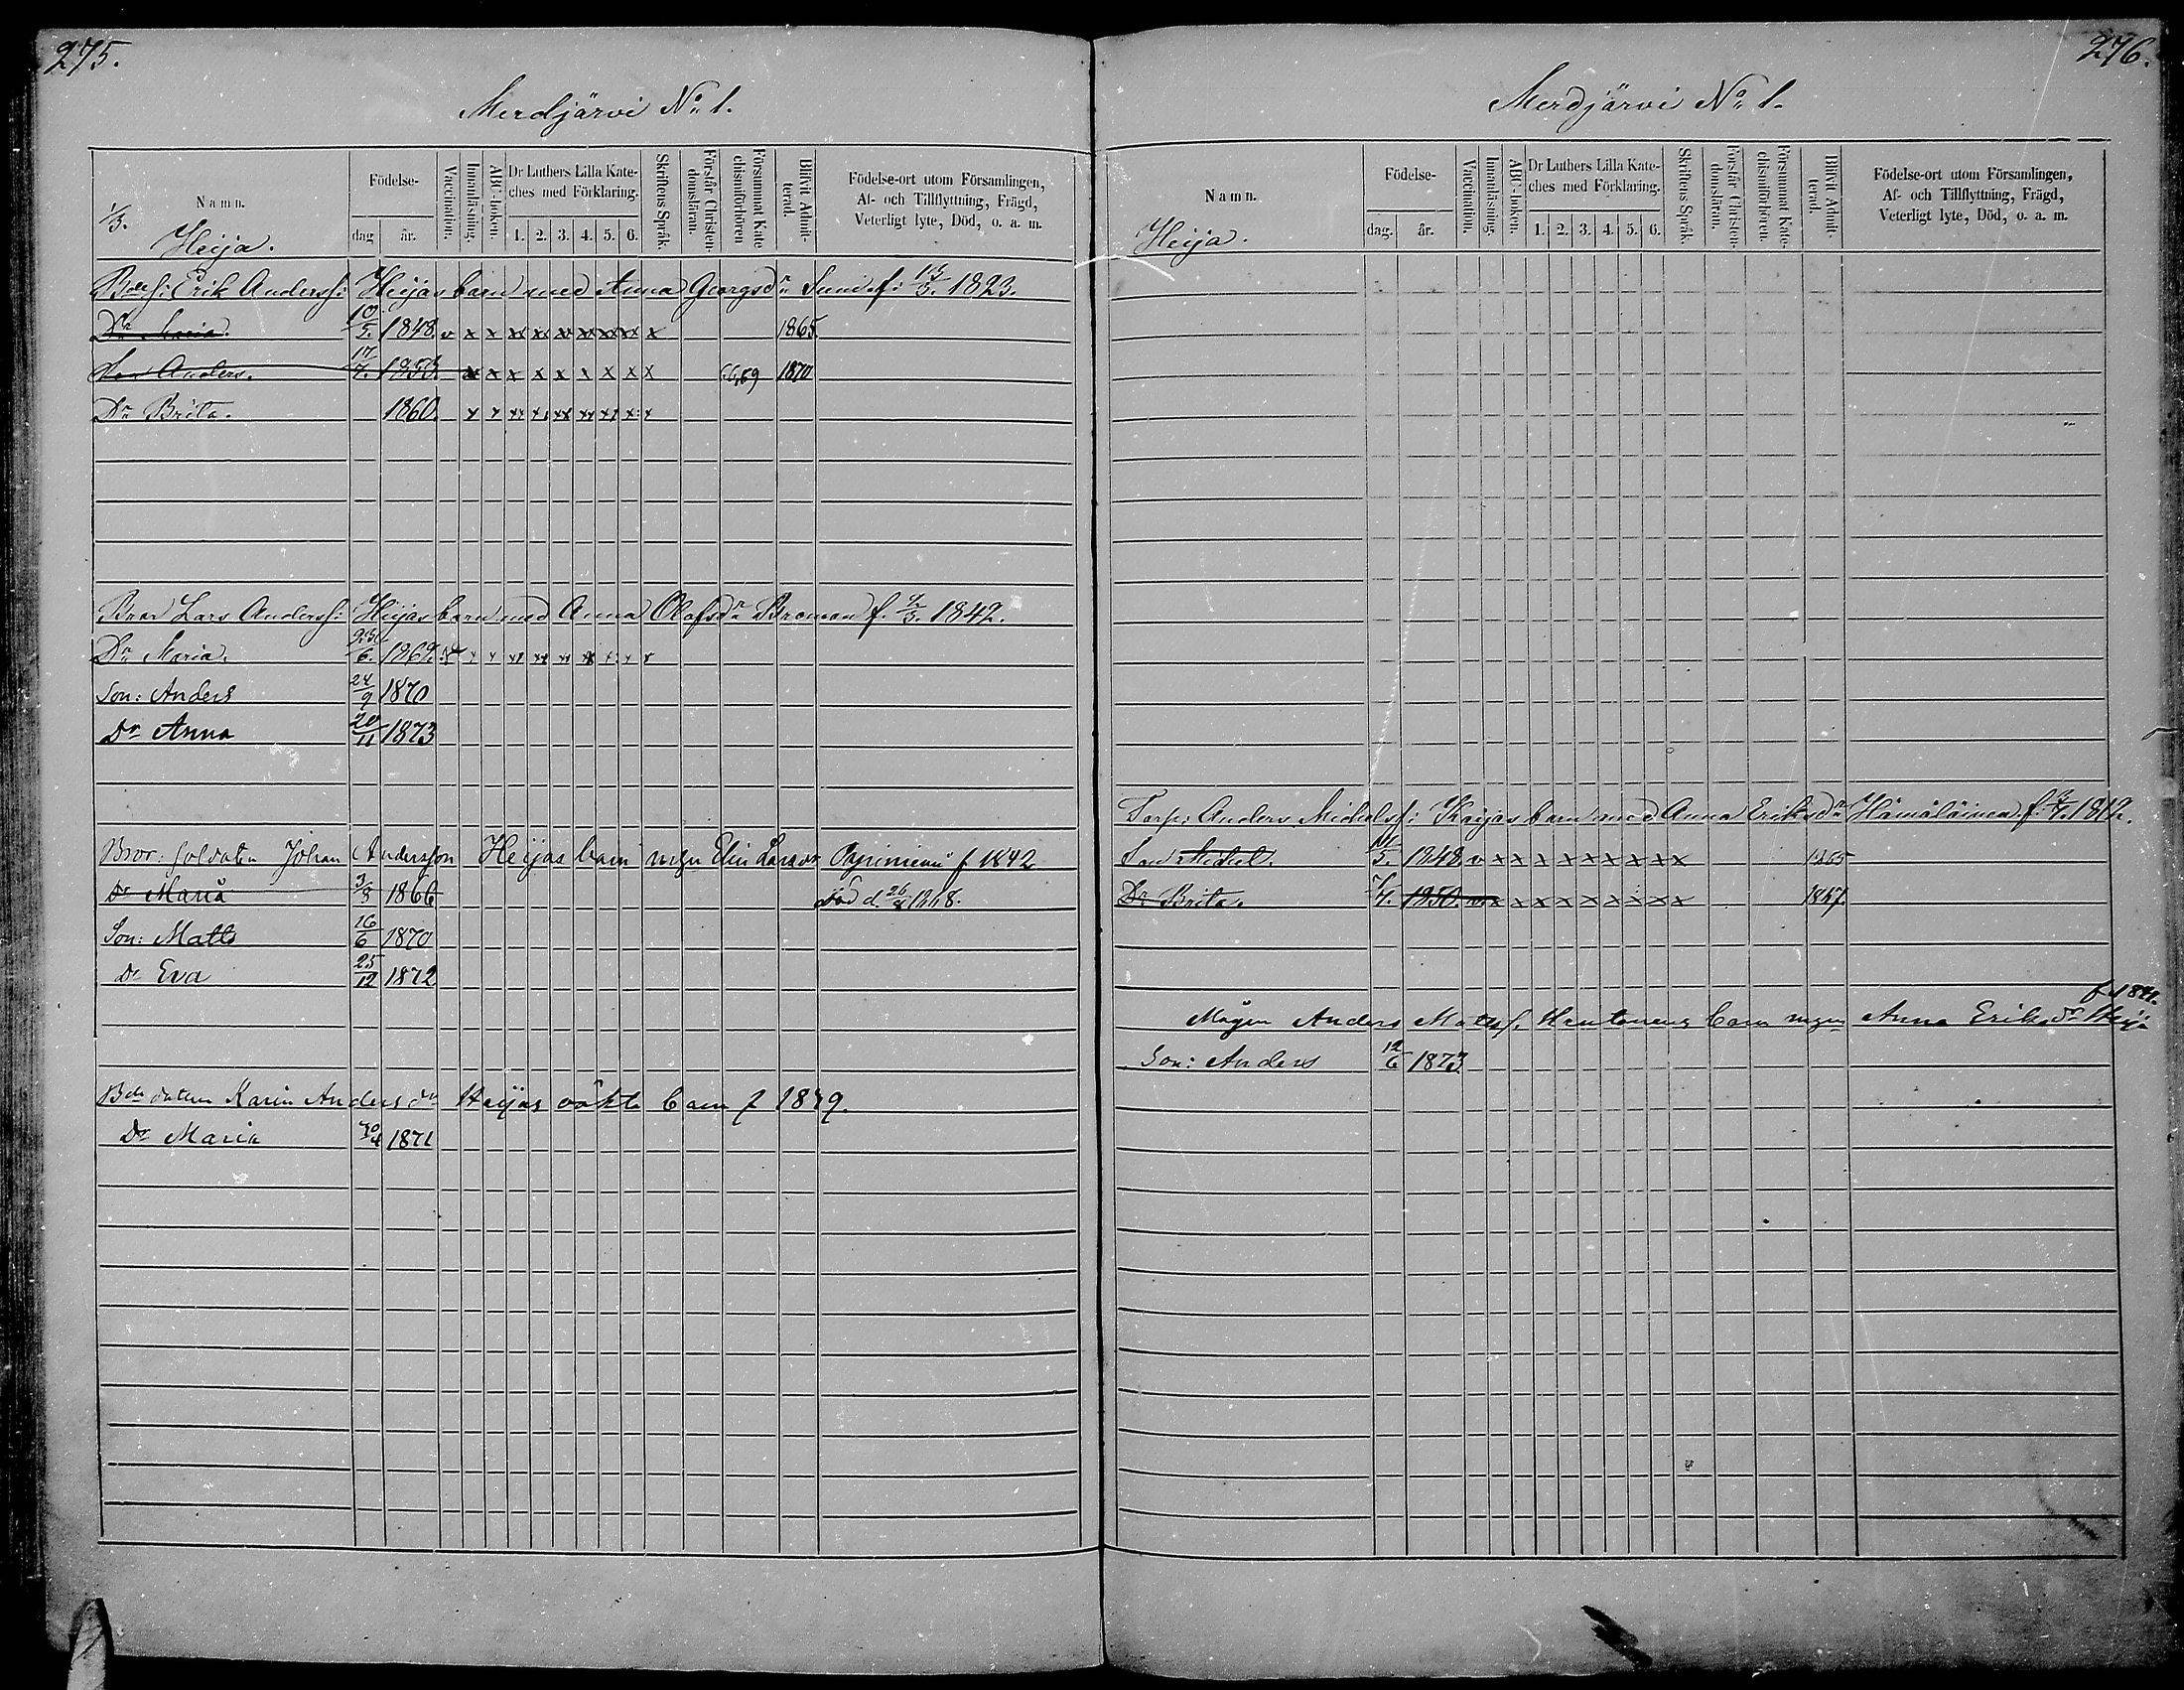 275.
Merdjärvi No 1.
Namn.
Födelse-
dag
år.
Vaccination.
Innanläsning.
ABC-boken.
Dr Luthers Lilla Kate-
ches med Förklaring.
1. 2. 3. 4. 5. 6.
Skriftens Språk.
Förstår Christen-
domsläran.
Försummat Kate
chismiförhören
Blifvit Admit-
terad.
Födelse-ort utom Församlingen,
Af- och Tillflyttning, Frägd,
Veterligt lyte, Död, o. a. m.
1/3.
Heija.
Erik Anderss: Heijas barn med Anna Georgsdr f: 13/3. 1823.
Dr Maria. 10/5. 1848. v x x xx xx xx xx xx xx x 1865.
Son Anders. 17/7. 1853 x x x x x x x x x 66,69 1870
Dr Brita. 1860. x x xx xx xx xx xx x x
Bror Lars Anderss: Heijas barn med Anna Olofsdr Broman f. 1842.
Dr Maria. 1869.
Son: Anders 24/9 1870
Dr Anna 20/11 1873
Bror: soldaten Johan Andersson Heijas barn m Elin Larsdr f 1842
Dr Maria 3/8 1866 död d. 1868.
Son: Matts 16/6 1870
Dr Eva 25/12 1872
Karin Andersdr Heijas oäkta barn f
Dr Maria 1871
276.
Merdjärvi No 1.
Namn.
Födelse-
dag.
år.
Vaccination.
Innanläsning.
ABC-boken.
Dr Luthers Lilla Kate-
ches med Förklaring.
1. 2. 3. 4. 5. 6.
Skriftens Språk.
Förstår Christen-
domsläran.
Försummat Kate-
chismiförhören.
Blifvit Admit-
terad.
Födelse-ort utom Församlingen,
Af- och Tillflyttning, Frägd,
Veterligt lyte, Död, o. a. m.
Heija.
Torp: Anders Michelss: barn med Anna Eriksdr Hämäläinen f. 1812.
Son Michel. 1848. v x x x x x x x x x 1865
Dr Brita. 1850. x x x x x x x x x 1867
Mågen Anders Matss. barn m Anna Eriksdr Heija
Son: Anders 12/6 1873